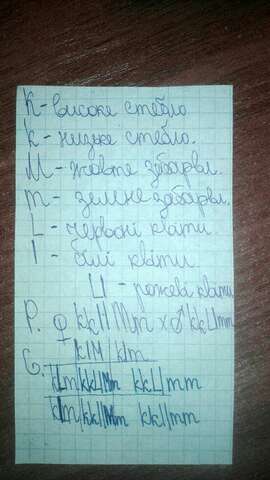 K - високе стебло
k - низьке стебло.
M - жовте забарвл.
m - зелене забарвл.
L - червоні квіти.
l - білі квіти.
Ll - рожеві квіти
P. ♀ kkllMm x ♂ kkLlmm
G. klM klm
kLm kkLlMm kkLlmm
klm kkllMm kkllmm